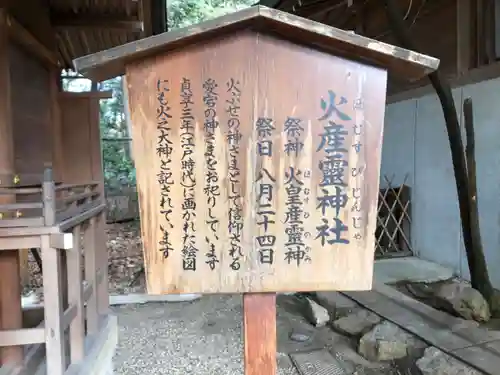 火産霊神社
ほむすびじんじゃ
祭神 火皇産霊神
ほむすびのかみ
祭日 八月二十四日
火ぶせの神さまとして信仰される
愛宕の神さまをお祀りしています
貞享三年(江戸時代)に画かれた絵図
にも火之大神と記されています